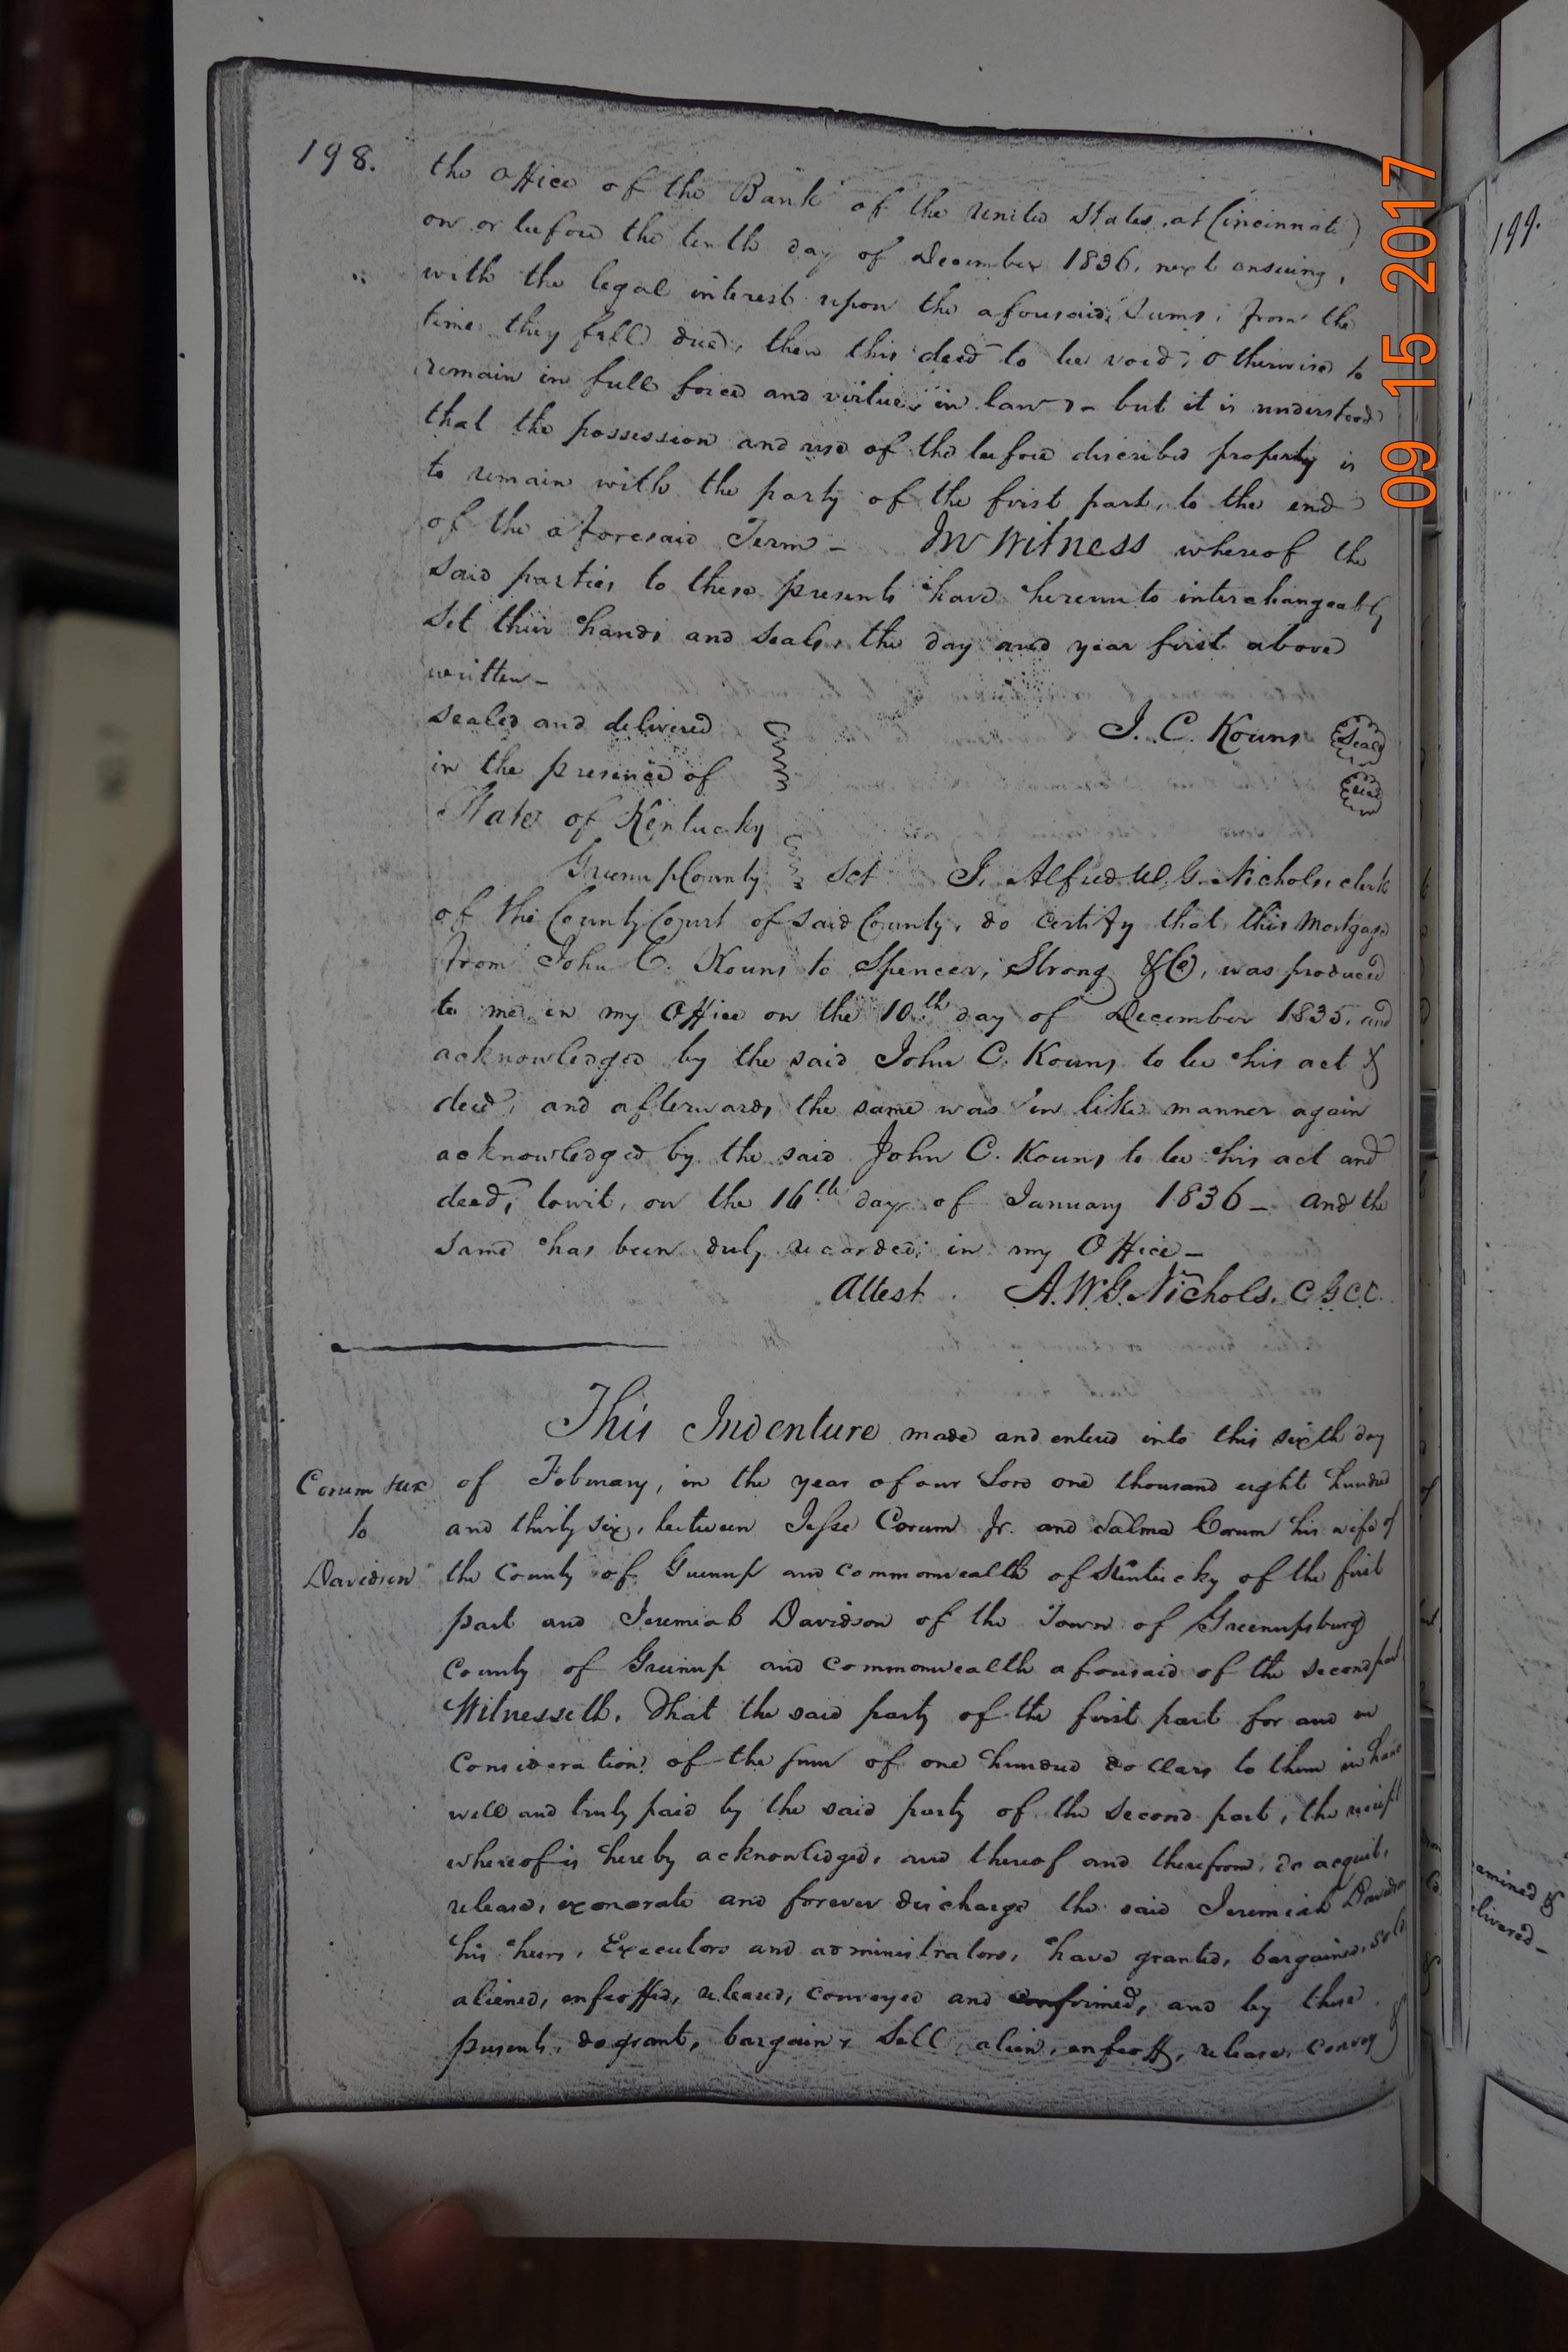 198.
the office of the Bank of the United States, at Cincinnati)
on or before the tenth day of December 1836, next ensuing,
with the legal interest upon the aforesaid Sums, from the
time they fall due, then this deed to be void, otherwise to
remain in full force and virtue in law, - but it is understood
that the possession and use of the before discribed property is
to remain with the party of the first part, to the end
of the aforesaid Term - In Witness whereof the
said parties to these presents have hereunto interchangeably
set their hands and seals, the day and year first above
written -
sealed and delivered
in the presence of
J. C. Kouns Seal
Seal
State of Kentucky
Greenup County Sct I, Alfred W. G. Nichols, clerk
of the County Court of said County, do certify that this Mortgage
from John C. Kouns to Spencer, Strong & Co, was produced
to me in my Office on the 10th day of December 1835, and
acknowledged by the said John C. Kouns to be his act &
deed, and afterwards the same was in like manner again
acknowledged by the said John C. Kouns to be his act and
deed, towit, on the 16th day of January 1836 - and the
same has been duly recorded in my Office -
Attest. A. W. G. Nichols. C G C C.
This Indenture made and entered into this sixth day
Corum & ux of February, in the year of our Lord one thousand eight hundred
to and thirty six, between Jesse Corum Jr. and Salma Corum his wife of
Davidson the County of Greenup and commonwealth of Kentucky of the first
part and Jeremiah Davidson of the Town of Greenupsburg
County of Greenup and commonwealth aforesaid of the second part
Witnesseth, That the said party of the first part for and in
Consideration of the sum of one hundred dollars to them in hand
well and truly paid by the said party of the second part, the receipt
whereof is hereby acknowledged, and thereof and therefrom, do acquit,
release, exonerate and forever discharge the said Jeremiah Davidson
his heirs, Executors and administrators, have granted, bargained, sold
aliened, enfeoffed, released, conveyed and confirmed, and by these
presents, do grant, bargain, Sell, alien, enfeoff, release, convey &
09 15 2017
199.
amined &
livered -